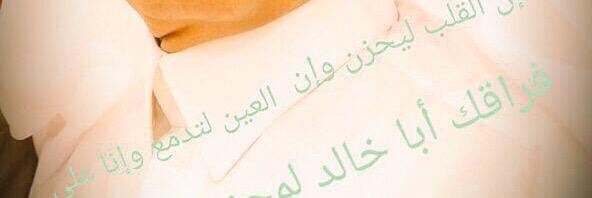 إن القلب ليحزن وإن العين لتدمع وإنا على
فراقك أبا خالد